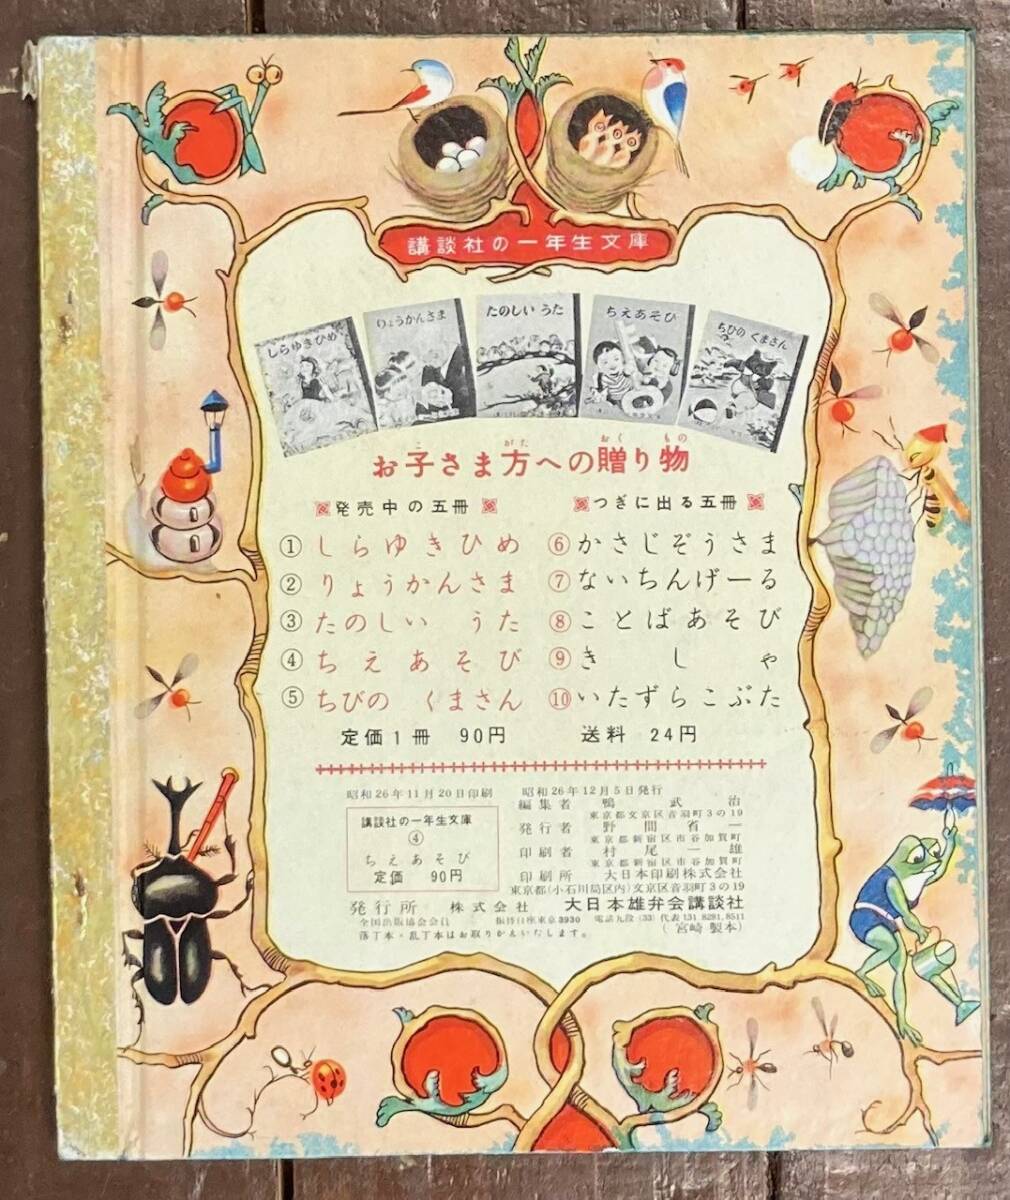 講談社の一年生文庫
しらゆきひめ
りょうかんさま
たのしい うた
ちえあそび
ちびの くまさん
お子さま方への贈り物
発売中の五冊
① しらゆきひめ
② りょうかんさま
③ たのしい うた
④ ちえあそび
⑤ ちびの くまさん
つぎに出る五冊
⑥ かさじぞうさま
⑦ ないちんげーる
⑧ ことばあそび
⑨ きしゃ
⑩ いたずらこぶた
定価1冊 90円 送料 24円
昭和26年11月20日印刷 昭和26年12月5日発行
講談社の一年生文庫
④
ちえあそび
定価 90円
編集者 鴨武治
東京都文京区音羽町3の19
発行者 野間省一
東京都新宿区市谷加賀町
印刷者 村尾一雄
東京都新宿区市谷加賀町
印刷所 大日本印刷株式会社
東京都(小石川局区内)文京区音羽町3の19
発行所 株式会社 大日本雄弁会講談社
全国出版協会会員 振替口座東京3930 電話九段(33)代表131.8281.8511
落丁本・乱丁本はお取りかえいたします。 (宮崎製本)